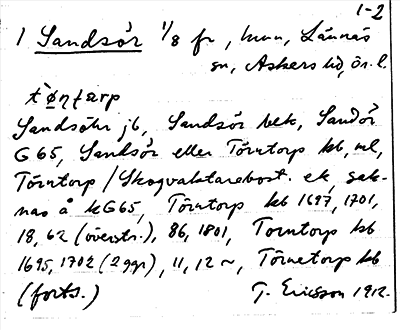 1-2
1 Sandsör 1/8 fr, hmn, Lännäs
sn, Askers hd, ör. l.
tò̱ṇtarp
Sandsöhr jb, Sandsör bek, Sandör
G 65, Sandsör eller Törntorp kb, ml,
Törntorp / Skogvaktarebost. ek, sak-
nas å kG65, Törntorp kb 1697, 1701,
18, 62 (överstr.), 86, 1801, Torntorp kb
1695, 1702 (2 ggr), 11, 12 ~, Törnetorp kb
(forts.) T. Ericsson 1912.